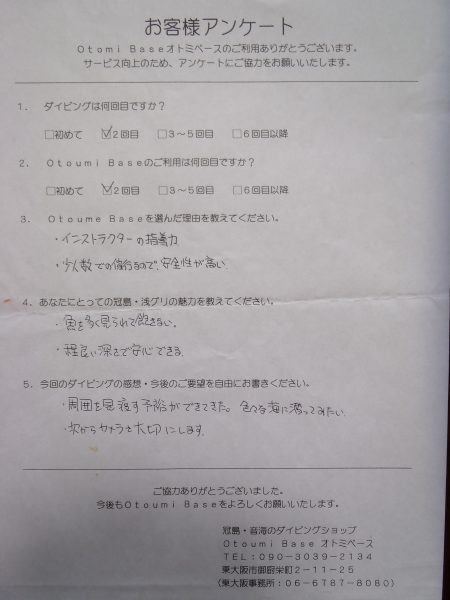 お客様アンケート
Otomi Baseオトミベースのご利用ありがとうございます。
サービス向上のため、アンケートにご協力をお願いいたします。
1. ダイビングは何回目ですか?
□初めて ☑2回目 □3~5回目 □6回目以降
2. Otoumi Baseのご利用は何回目ですか?
□初めて ☑2回目 □3~5回目 □6回目以降
3. Otoume Baseを選んだ理由を教えてください。
・インストラクターの指導力
・少人数での 安全性が高い
4. あなたにとっての冠島・浅グリの魅力を教えてください。
・魚を多く見られて飽きない。
・程良い深さで安心できる
5. 今回のダイビングの感想・今後のご要望を自由にお書きください。
・周囲を見渡す余裕ができてきた。色々な海に潜ってみたい。
・次からカメラを大切にします。
ご協力ありがとうございました。
今後もOtoumi Baseをよろしくお願いいたします。
冠島・音海のダイビングショップ
Otoumi Base オトミベース
TEL:090-3039-2134
東大阪市御厨栄町2-11-25
(東大阪事務所:06-6787-8080)